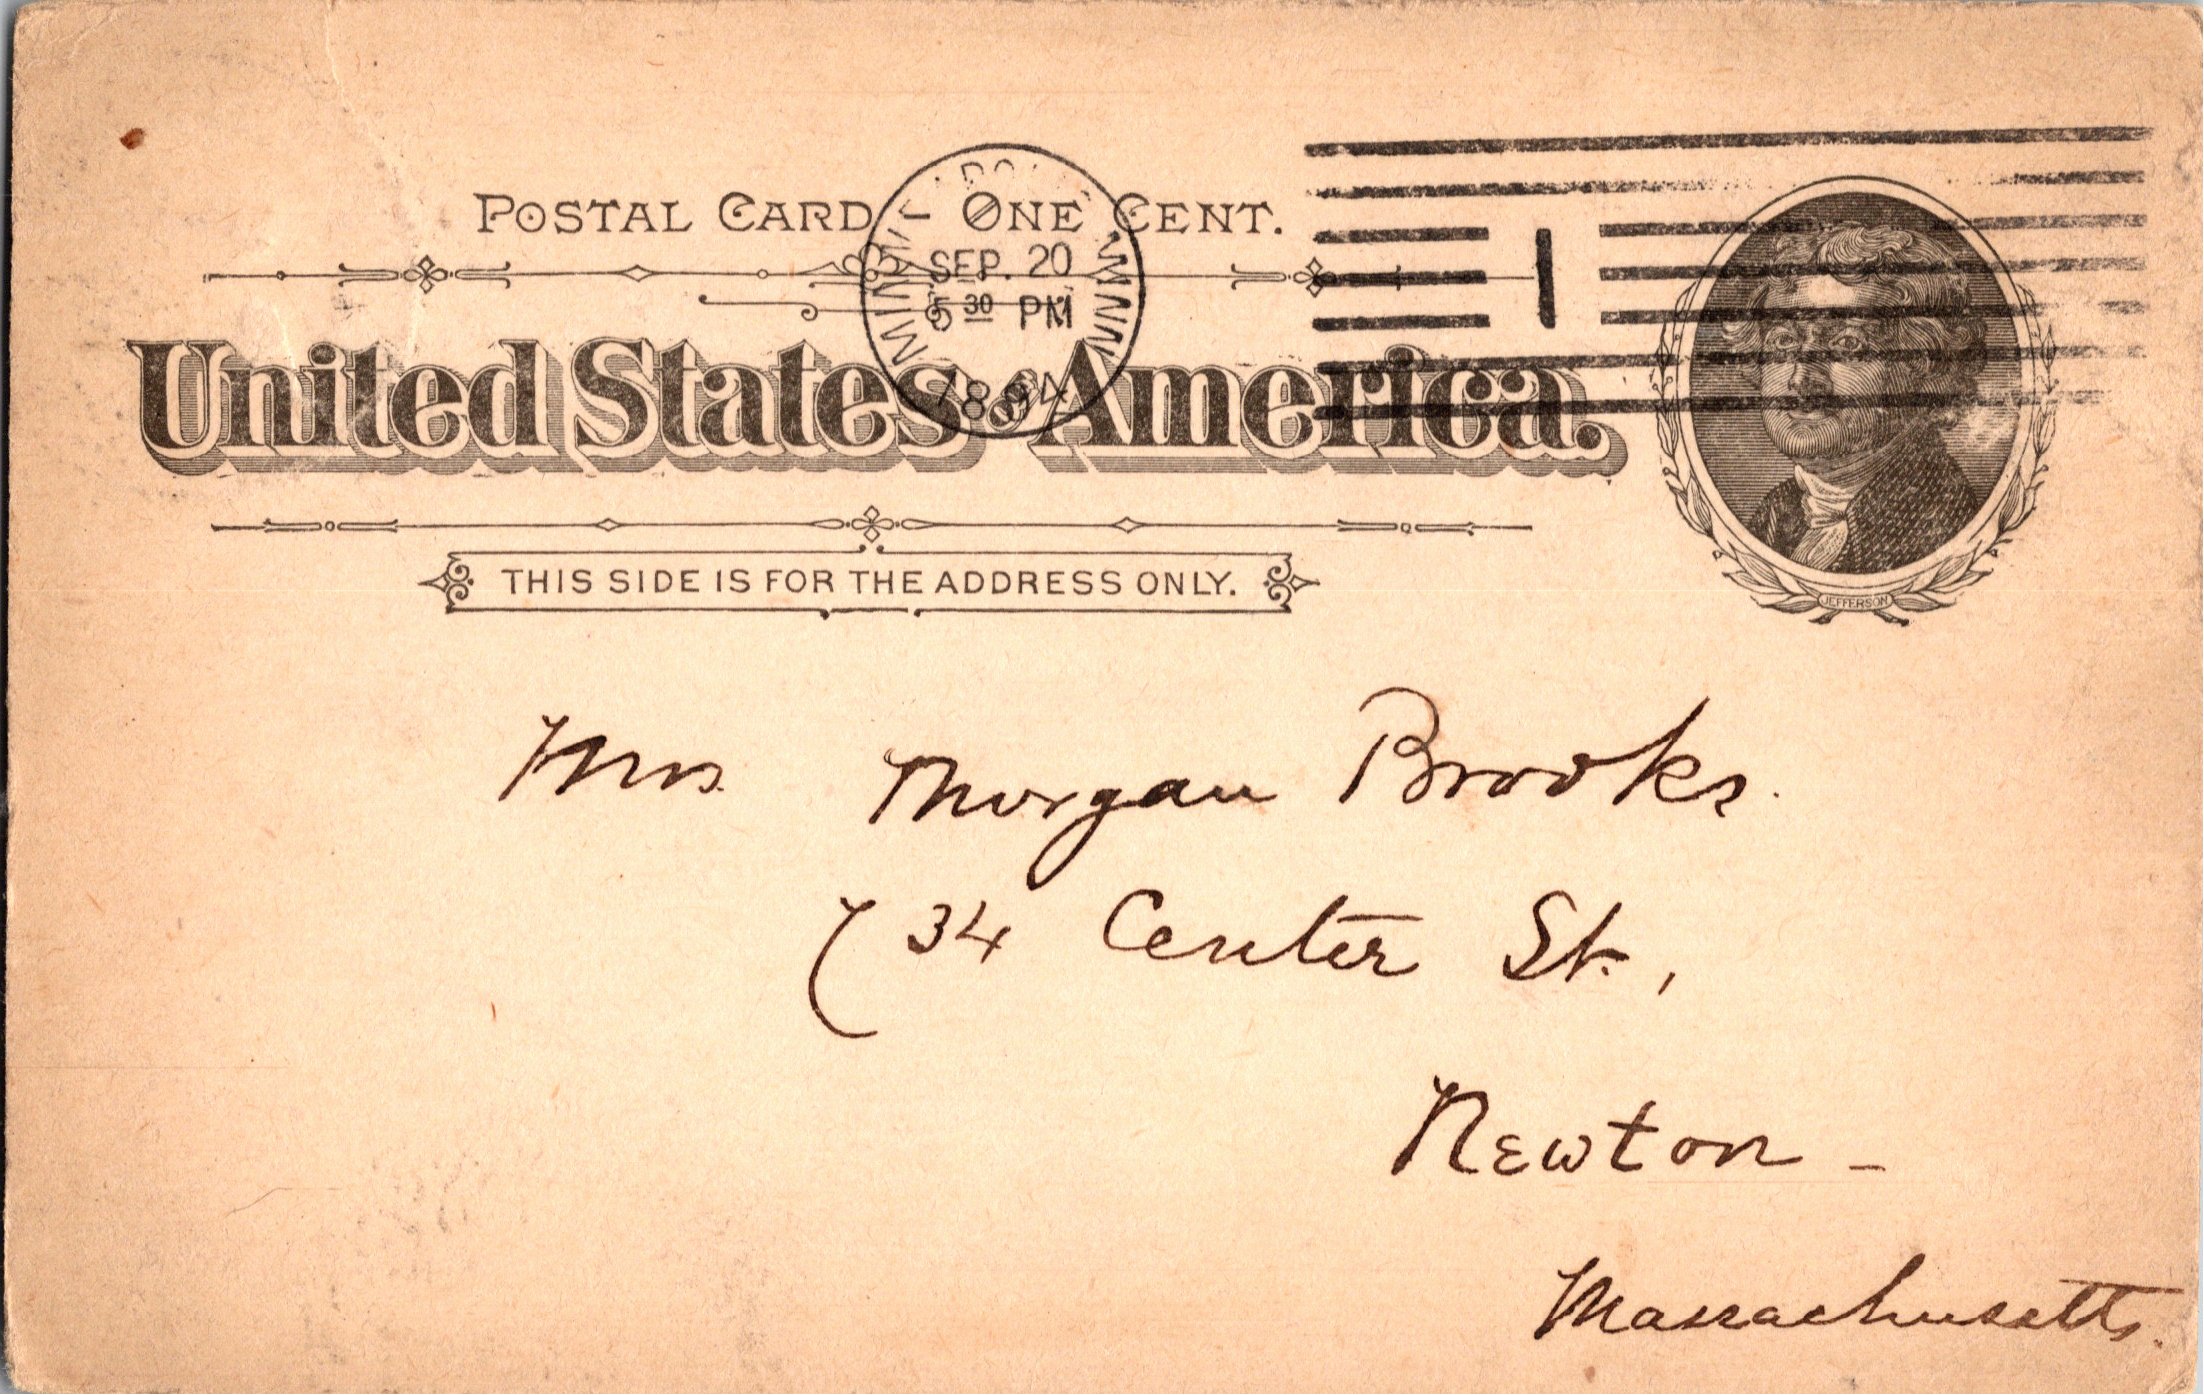 POSTAL CARD ONE CENT.
MINNEAPOLIS MINN
SEP. 20
5 30 PM
1894
United States of America.
THIS SIDE IS FOR THE ADDRESS ONLY.
JEFFERSON
1
Mrs. Morgan Brooks.
( 34 Center St.,
Newton -
Massachusetts.